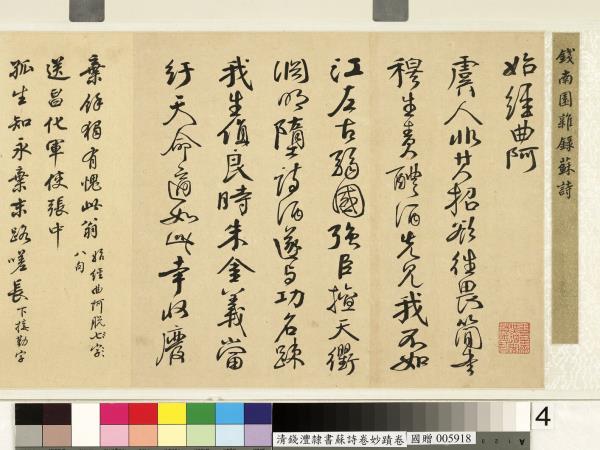 錢南園雜錄蘇詩
始經曲阿
虞人非其招欲往畏簡書
穆生責醴酒先見我不如
江左古弱國強臣擅天衢
淵明墮詩酒遂与功名疎
我生值良時朱金義當
紆天命適如此幸收廢
棄餘猶有愧此翁
始經曲阿脫七字
八句
送昌化軍使張中
孤生知永棄末路嗟長
下接勤字
4
清錢灃隸書蘇詩卷妙蹟卷 國贈 005918